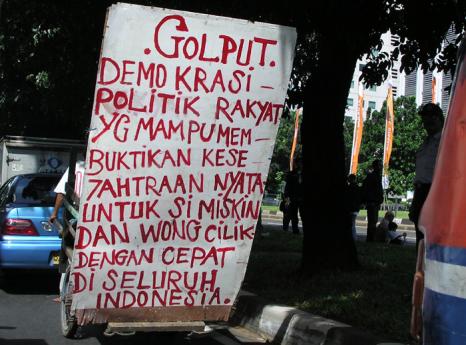 . GOLPUT.
DEMOKRASI –
POLITIK RAKYAT
YG MAMPU MEM –
BUKTIKAN KESE
JAHTRAAN NYATA
UNTUK SI MISKIN
DAN WONG CILIK
DENGAN CEPAT
DI SELURUH
INDONESIA.